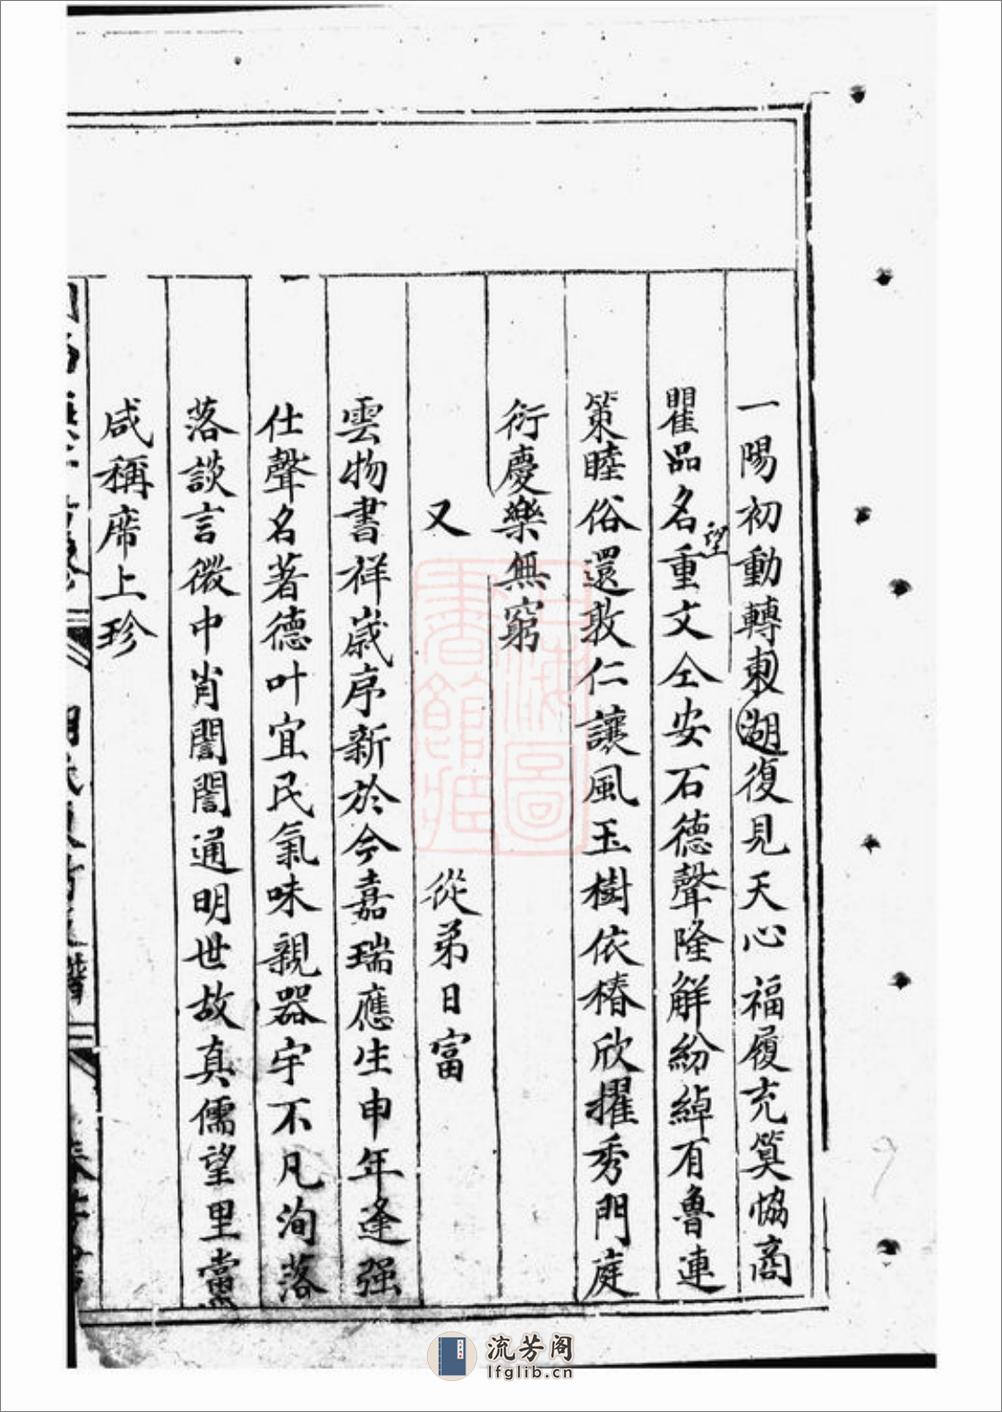 一陽初動轉東湖復見天心福履充算恊商
瞿品名望重文仝安石德聲隆解紛綽有魯連
策睦俗還敦仁讓風玉樹依椿欣擢秀門庭
衍慶樂無窮
又 從弟日富
雲物書祥歲序新於今嘉瑞應生申年逢强
仕聲名著德叶宜民氣味親器宇不凡洵落
落談言微中肖誾誾通明世故真儒望里黨
咸稱席上珍
流芳阁
lfglib.cn